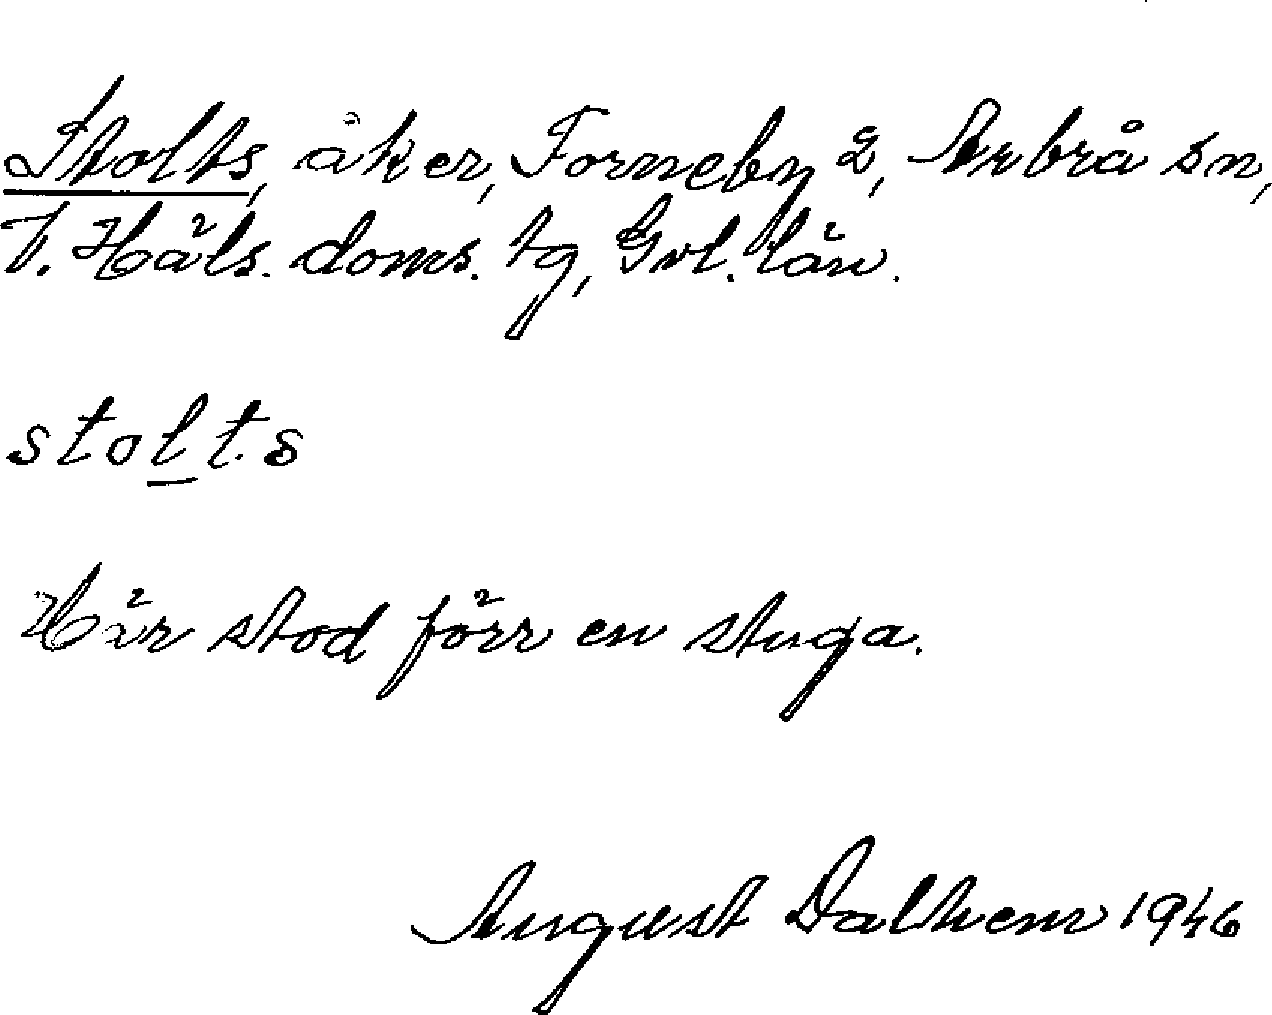 Stolts, åker, Forneby 2, Arbrå sn,
V. Häls. doms. tg, Gvl. län.
stolts
Här stod förr en stuga.
August Dalhem 1946